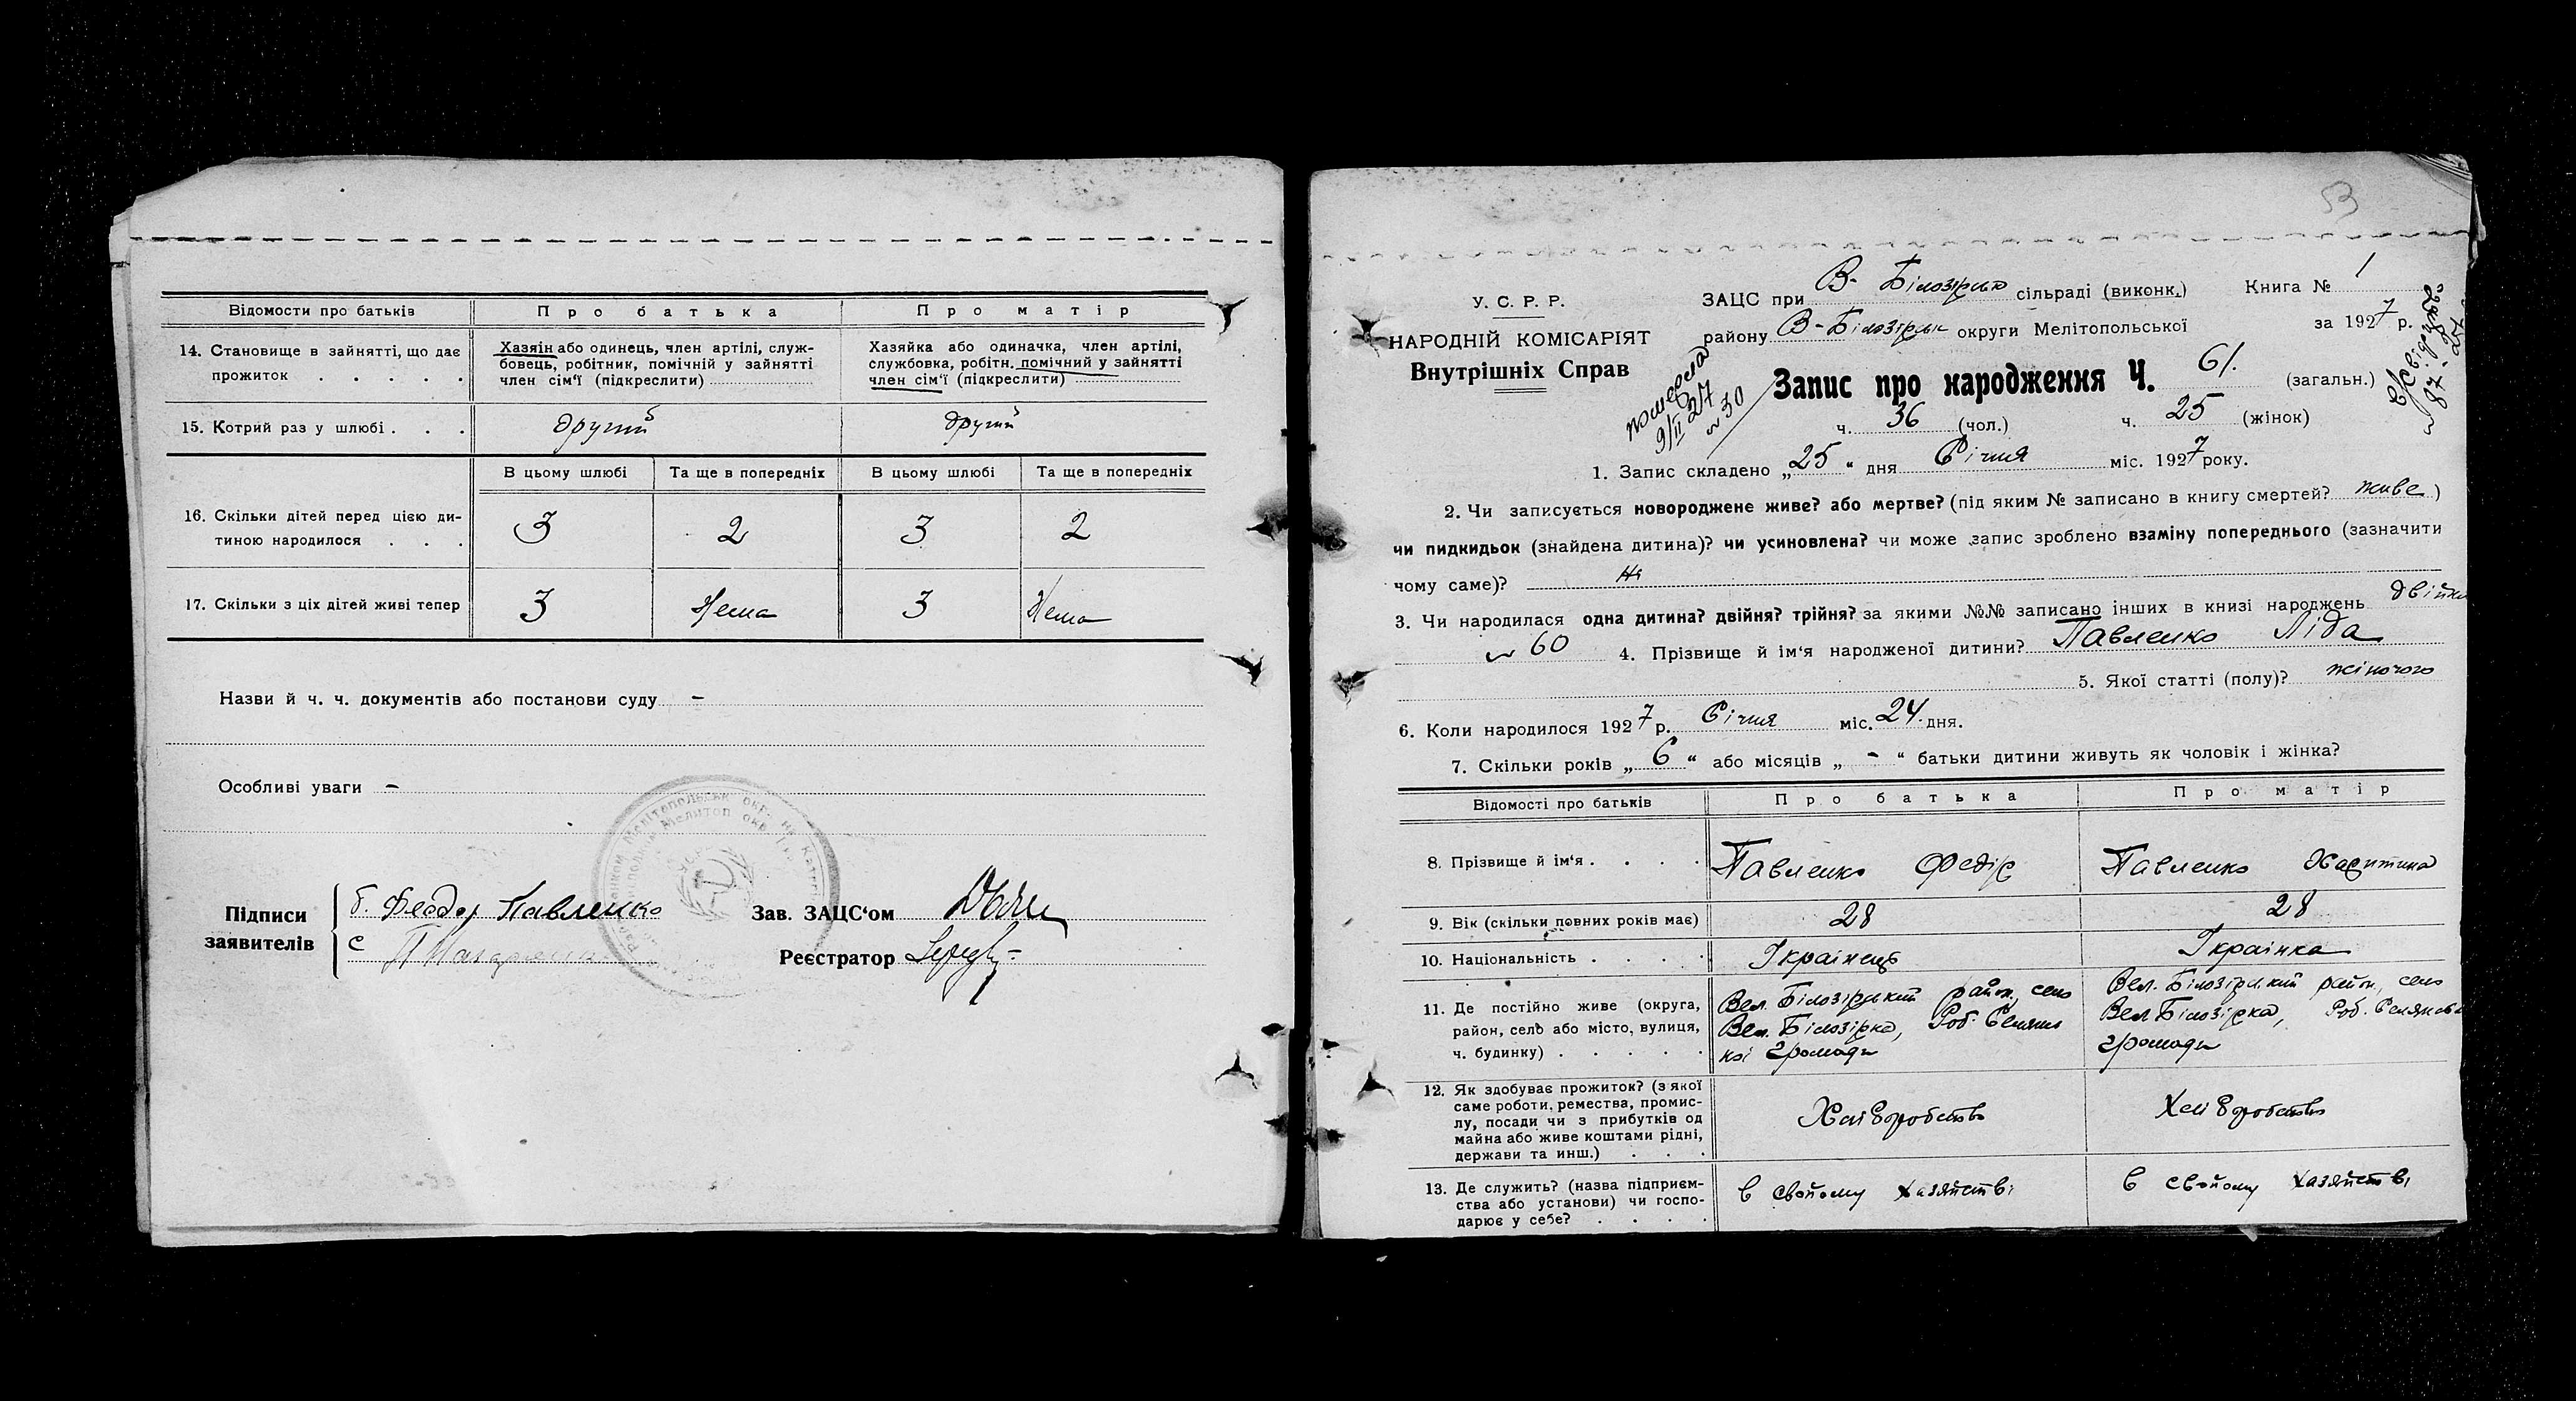 Відомости про батьків
Про батька
Про матір
14. Становище в зайнятті, що дає прожиток . . . . .
Хазяін або одинець, член артілі, служ-
бовець, робітник, помічній у зайнятті
член сім'ї (підкреслити)
Хазяйка або одиначка, член артілі,
службовка, робітн. помічний у зайнятті
член сім'ї (підкреслити)
15. Котрий раз у шлюбі . . .
другий
другий
В цьому шлюбі
Та ще в попередніх
В цьому шлюбі
Та ще в попередніх
16. Скільки дітей перед цією ди-
тиною народилося . . .
3
2
3
2
17. Скільки з ціх дітей живі тепер
3
Нема
3
Нема
Назви й ч. ч. документів або постанови суду –
Особливі уваги –
Підписи
заявителів
б. Феодор Павленко
с
Зав. ЗАЦС'ом
Реєстратор
53
У. С. Р. Р.
НАРОДНІЙ КОМІСАРІЯТ
Внутрішніх Справ
ЗАЦС при В- Білозірсько сільраді (виконк.)
Книга № 1
району В-Білозірськ округи Мелітопольської
за 1927 р.
померла
9/II 27
№ 30
Запис про народження Ч. 61. (загальн.)
ч. 36 (чол.) ч. 25 (жінок)
1. Запис складено „25" дня Січня міс. 1927 року.
2. Чи записується новороджене живе? або мертве? (під яким № записано в книгу смертей? живе)
чи пидкидьок (знайдена дитина)? чи усиновлена? чи може запис зроблено взаміну попереднього (зазначити
чому саме)? ні
3. Чи народилася одна дитина? двійня? трійня? за якими №№ записано інших в книзі народжень двійня
№ 60 4. Прізвище й ім'я народженої дитини? Павленко Ліда
5. Якої статті (полу)? жіночого
6. Коли народилося 1927 р. Січня міс. 24 дня.
7. Скільки років „ 6 " або місяців „ - " батьки дитини живуть як чоловік і жінка?
Відомості про батьків
Про батька
Про матір
8. Прізвище й ім'я . . . .
Павленко Федір
Павленко Харитина
9. Вік (скільки повних років має)
28
28
10. Національність . . . .
Українець
Українка
11. Де постійно живе (округа,
район, село або місто, вулиця,
ч. будинку) . . . . .
Вел. Білозірський район, село
Вел. Білозірка, Роб. Селянсь
кої громади
Вел. Білозірський район, село
Вел. Білозірка, Роб. Селянської
громади
12. Як здобуває прожиток? (з якої
саме роботи, ремества, промис-
лу, посади чи з прибутків од
майна або живе коштами рідні,
держави та инш.) . . .
Хліборобство
Хліборобство
13. Де служить? (назва підприєм-
ства або установи) чи госпо-
дарює у себе? . . . .
в свойому хазяйстві
в свойому хазяйстві